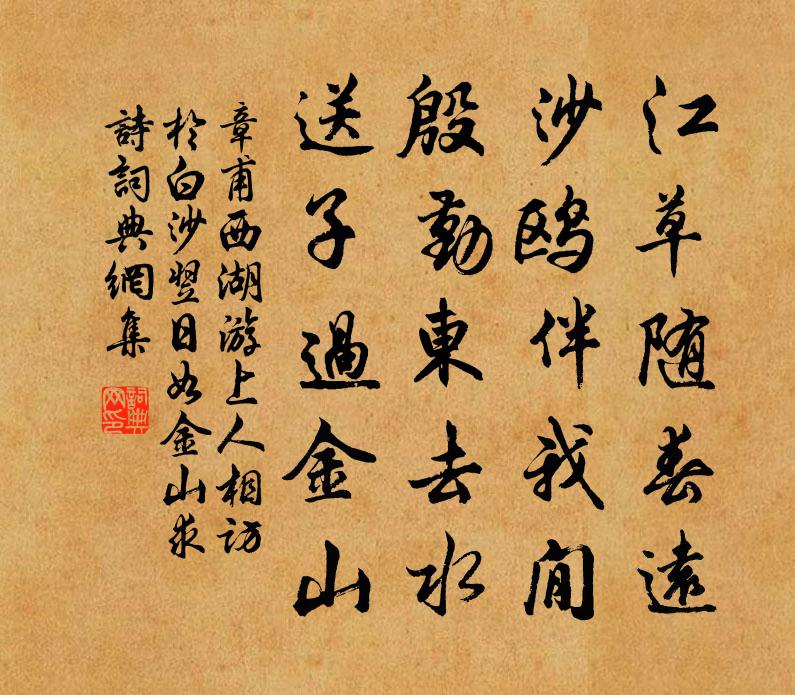 江草随春遠
沙鸥伴我閒
殷勤東去水
送子過金山
章甫西湖游上人相訪
於白沙翌日如金山求
詩詞典網集
詞典
网印